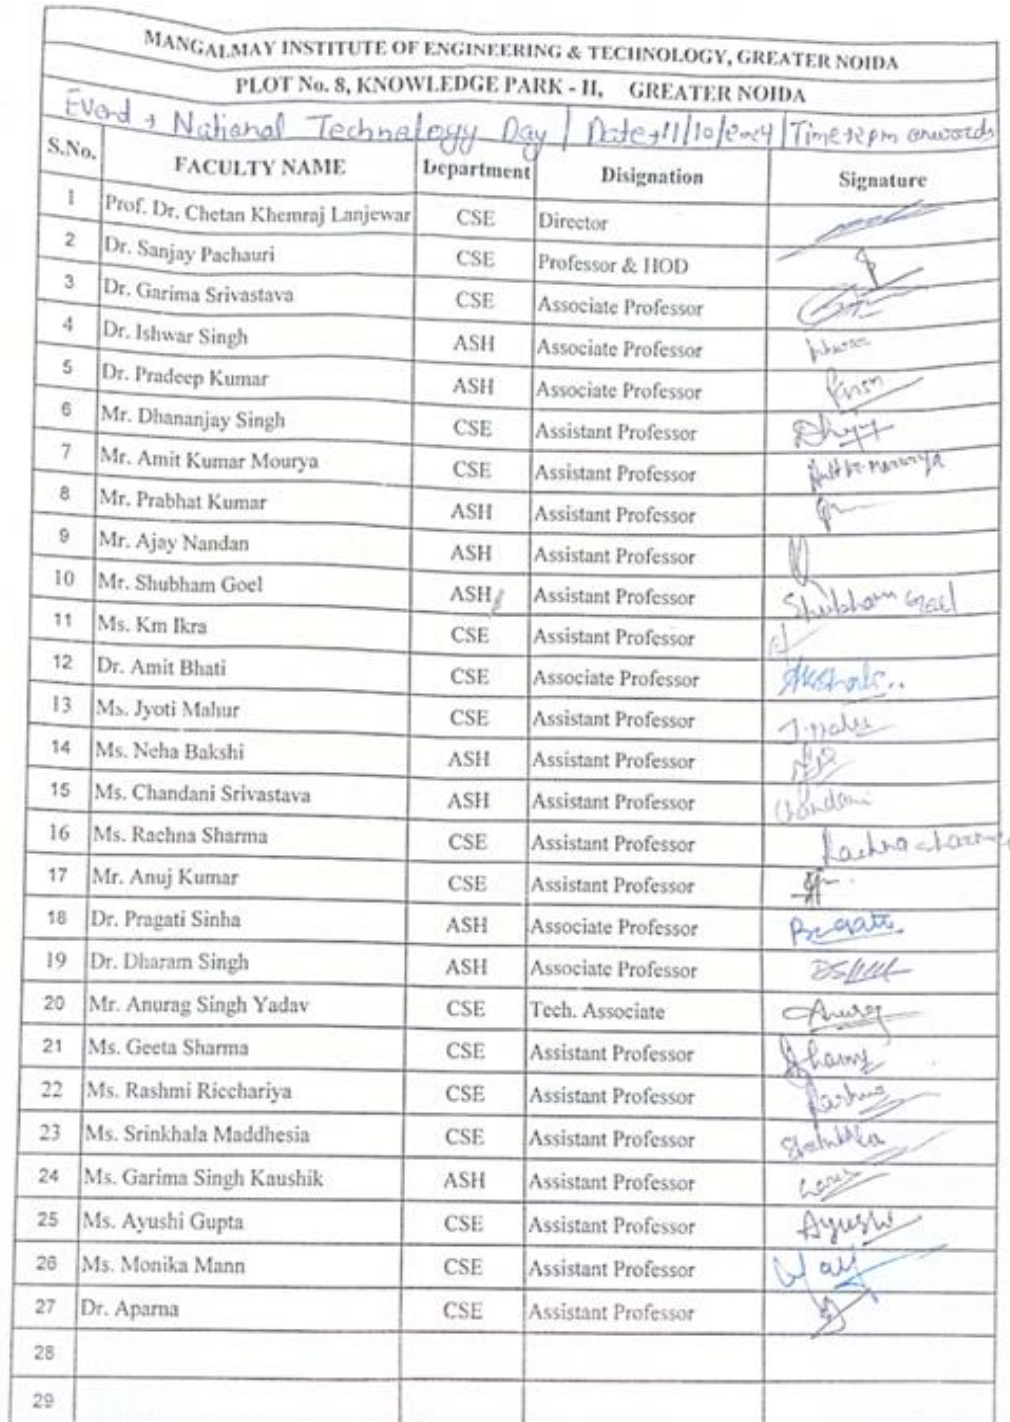 MANGALMAY INSTITUTE OF ENGINEERING & TECHNOLOGY, GREATER NOIDA
PLOT No. 8, KNOWLEDGE PARK - II, GREATER NOIDA
Event → National Technology Day | Date → 11/10/2024 | Time → 12 pm onwards
S.No. FACULTY NAME Department Disignation Signature
1 Prof. Dr. Chetan Khemraj Lanjewar CSE Director
2 Dr. Sanjay Pachauri CSE Professor & HOD
3 Dr. Garima Srivastava CSE Associate Professor
4 Dr. Ishwar Singh ASH Associate Professor
5 Dr. Pradeep Kumar ASH Associate Professor
6 Mr. Dhananjay Singh CSE Assistant Professor
7 Mr. Amit Kumar Mourya CSE Assistant Professor
8 Mr. Prabhat Kumar ASH Assistant Professor
9 Mr. Ajay Nandan ASH Assistant Professor
10 Mr. Shubham Goel ASH Assistant Professor Shubham Goel
11 Ms. Km Ikra CSE Assistant Professor
12 Dr. Amit Bhati CSE Associate Professor
13 Ms. Jyoti Mahur CSE Assistant Professor
14 Ms. Neha Bakshi ASH Assistant Professor
15 Ms. Chandani Srivastava ASH Assistant Professor Chandani
16 Ms. Rachna Sharma CSE Assistant Professor Rachna sharma
17 Mr. Anuj Kumar CSE Assistant Professor
18 Dr. Pragati Sinha ASH Associate Professor
19 Dr. Dharam Singh ASH Associate Professor
20 Mr. Anurag Singh Yadav CSE Tech. Associate Anurag
21 Ms. Geeta Sharma CSE Assistant Professor
22 Ms. Rashmi Ricchariya CSE Assistant Professor
23 Ms. Srinkhala Maddhesia CSE Assistant Professor
24 Ms. Garima Singh Kaushik ASH Assistant Professor
25 Ms. Ayushi Gupta CSE Assistant Professor Ayushi
26 Ms. Monika Mann CSE Assistant Professor
27 Dr. Aparna CSE Assistant Professor
28
29